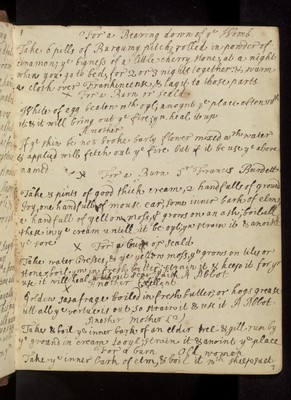 For a Bearing down of ye Womb
Take 6 pills of Burgunq pitch, rolled in powder of
cinamon; ye bigness of a little cherry stone, at a night
when your go to bed, for 2 or 3 nights together: & warm
a cloth over Frankincense, & lay it to those parts
For a Burn or scald
White of egg beaten wth oyl, anoynt ye place often wth
it & it will bring out ye fire, & heal it up
Another
If ye skin be not broke barly flower mixed wth water
& applied will fetch out ye fire but if it be use ye above
named
X For a Burn Sr Francis Burdett
Take 2 pints of good thick cream, 2 handfulls of ground
Ivy, one handfull of mouse ear, some inner bark of elm,
a handfull of yellow moss yt grows on an ash, boil all
these in ye cream untill it be oyl, yn strain it & anoint
ye sore
X For a burn or scald
Take water cresses, & ye yellow moss yt grows on tiles or
stone, boil ym in fresh butter, strain it & keep it for ye
use it will heal A Abbot
Another Excellent
boiled in fresh butter or hogs grease
till all ye vertue is out so strain it & use it A Abbot
Another mother
Take & boil ye inner bark of an elder tree & gill run by
ye ground in cream to oyl strain it & anoint ye place
For a burn Old woman
Take ye inner bark of elm, & boil it wth sheep suet